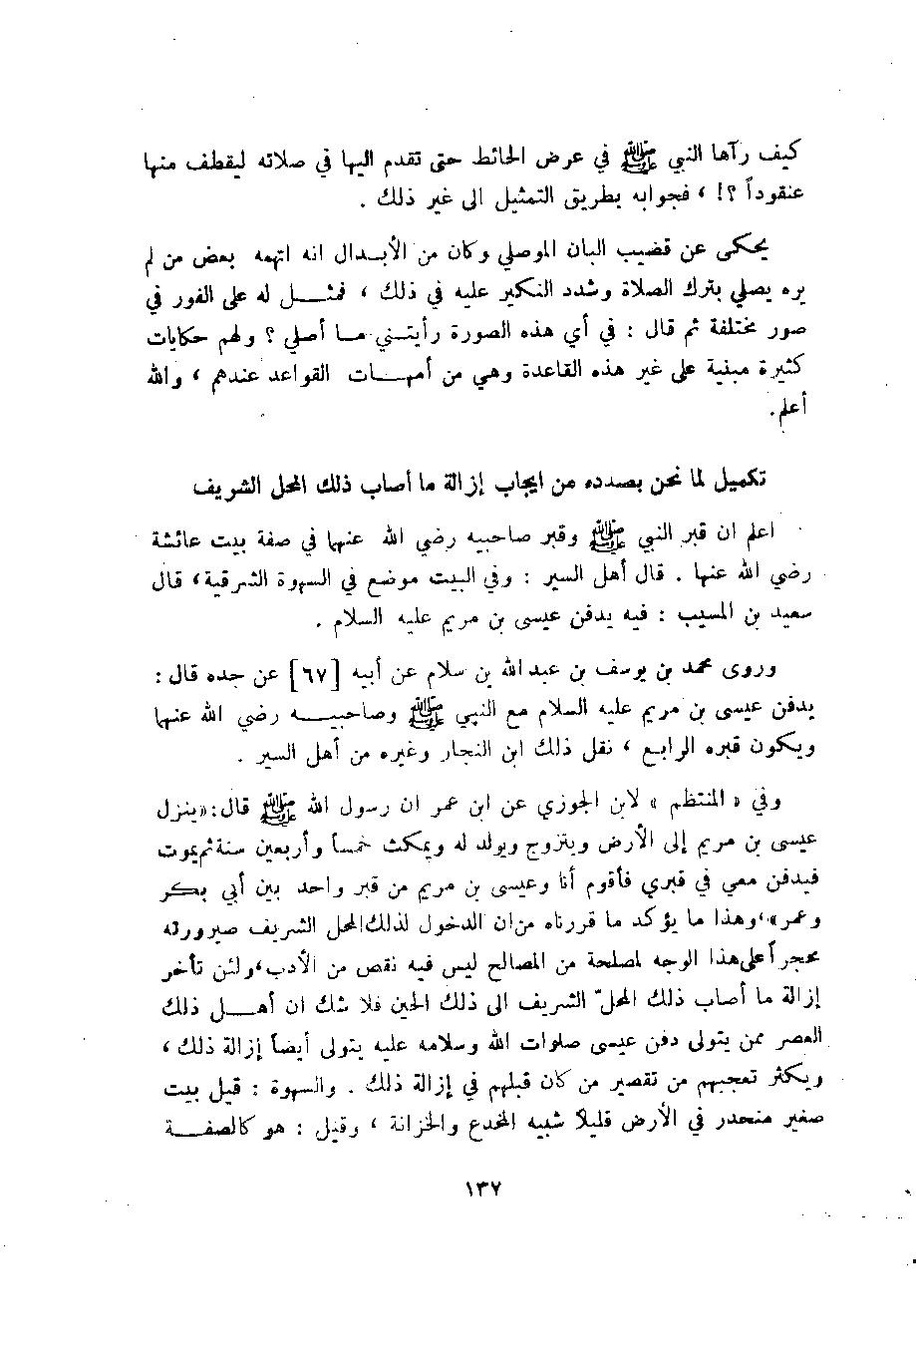 كيف رآها النبي ﷺ في عرض الحائط حتى تقدم اليها في صلاته ليقطف منها
عنقوداً ؟! ، فجوابه بطريق التمثيل الى غير ذلك .
يحكى عن قضيب البان الموصلي وكان من الأبـدال انه اتهمه بعض من لم
يره يصلي بترك الصلاة وشدد النكير عليه في ذلك ، فمثـــل له على الفور في
صور مختلفة ثم قال : في أي هذه الصورة رأيتـني مـا أصلي ؟ ولهم حكايات
كثيرة مبنية على غير هذه القاعدة وهي من أمهـــات القواعد عندهم ، والله
أعلم.
تكميل لما نحن بصدده من ايجاب إزالة ما أصاب ذلك المحل الشريف
اعلم ان قبر النبي ﷺ وقبر صاحبيه رضي الله عنهما في صفة بيت عائشة
رضي الله عنها . قال أهل السير : وفي البيت موضع في السهوة الشرقية، قال
سعيد بن المسيب : فيه يدفن عيسى بن مريم عليه السلام .
وروى محمد بن يوسف بن عبدالله بن سلام عن أبيه [٦٧] عن جده قال :
يدفن عيسى بن مريم عليه السلام مع النبي ﷺ وصاحبيـــه رضي الله عنهما
ويكون قبره الرابع ، نقل ذلك ابن النجار وغيره من أهل السير .
وفي « المنتظم » لابن الجوزي عن ابن عمر ان رسول الله ﷺ قال:«ينزل
عيسى بن مريم إلى الأرض ويتزوج ويولد له ويمكث خمساً وأربعين سنة ثم يموت
فيدفن معي في قبري فأقوم أنا وعيسى بن مريم من قبر واحد بين أبي بكر
وعمر»،وهذا ما يؤكد ما قررناه من ان الدخول لذلك المحل الشريف صيرورته
محجراً على هذا الوجه لمصلحة من المصالح ليس فيه نقص من الأدب،ولئن تأخر
إزالة ما أصاب ذلك المحلّ الشريف الى ذلك الحين فلا شك ان أهـــل ذلك
العصر ممن يتولى دفن عيسى صلوات الله وسلامه عليه يتولى أيضاً إزالة ذلك ،
ويكثر تعجبهم من تقصير من كان قبلهم في إزالة ذلك . والسهوة : قيل بيت
صغير منحدر في الأرض قليلاً شبيه المخدع والخزانة ، وقيل : هو كالصفـــة
١٣٧